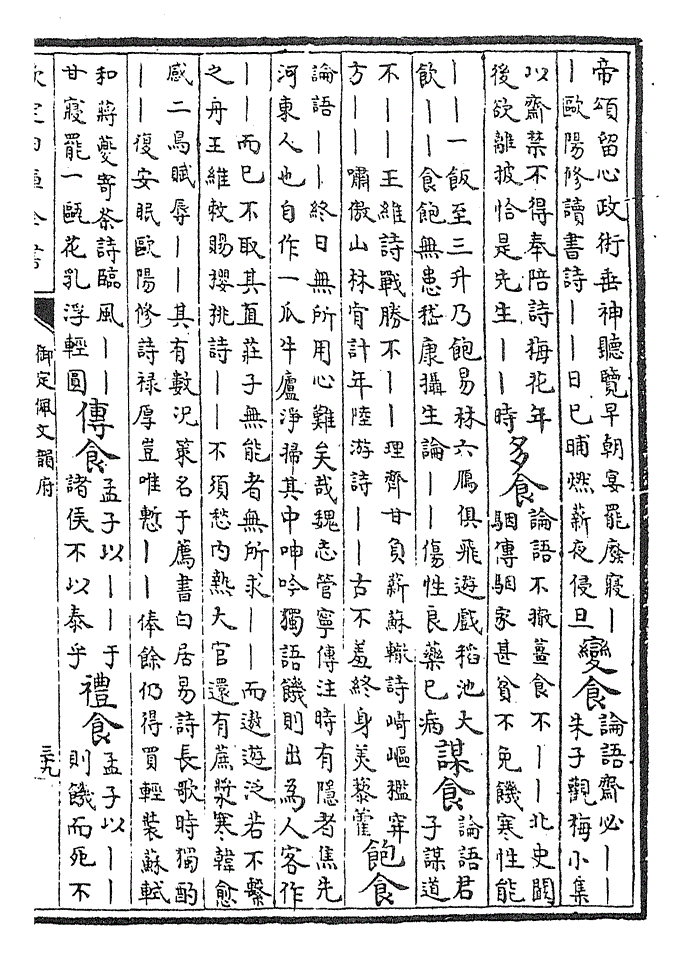 帝頌留心政術垂神聽覽早朝宴罷廢寢丨
丨歐陽修讀書詩丨丨日已晡燃薪夜侵旦
變食
論語齋必丨丨
朱子觀梅小集
以齋禁不得奉陪詩梅花年
後欲離披恰是先生丨丨時
多食
論語不撤薑食不丨丨北史闞
駰傳駰家甚貧不免饑寒性能
丨丨一飯至三升乃飽易林六鴈俱飛遊戲稻池大
飲丨丨食飽無患嵇康攝生論丨丨傷性良藥已病
謀食
論語君
子謀道
不丨丨王維詩戰勝不丨丨理齊甘負薪蘇轍詩崎嶇檻穽
方丨丨嘯傲山林肯計年陸游詩丨丨古不羞終身美藜藿
飽食
論語丨丨終日無所用心難矣哉魏志管寧傳注時有隱者焦先
河東人也自作一瓜牛廬淨掃其中呻吟獨語饑則出為人客作
丨丨而已不取其直莊子無能者無所求丨丨而遨遊泛若不繫
之舟王維敕賜櫻桃詩丨丨不須愁内熱大官還有蔗漿寒韓愈
感二鳥賦辱丨丨其有數況策名于薦書白居易詩長歌時獨酌
丨丨復安眠歐陽修詩禄厚豈唯慙丨丨俸餘仍得買輕裝蘇軾
和蔣夔寄茶詩臨風丨丨
甘寢罷一甌花乳浮輕圓
傳食
孟子以丨丨于
諸侯不以泰乎
禮食
孟子以丨丨
則饑而死不
欽定四庫全書
御定佩文韻府
三九